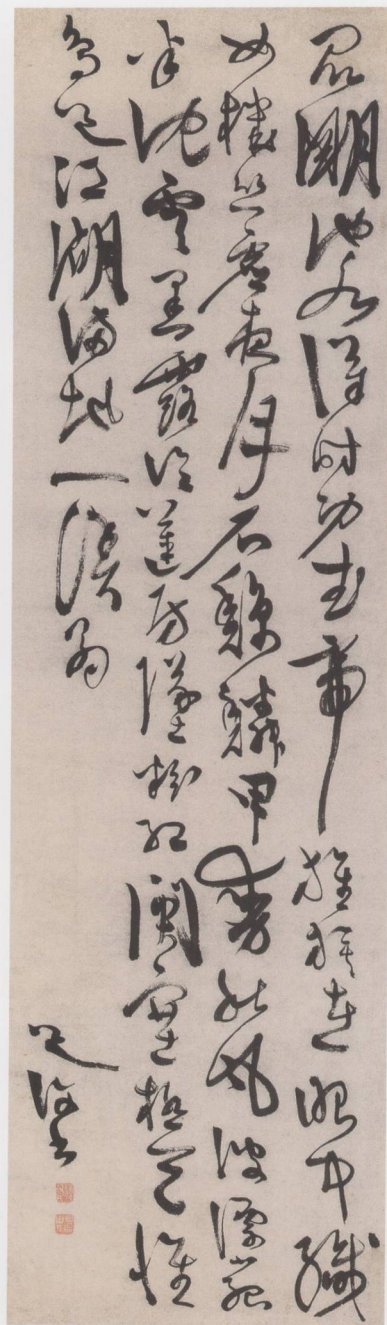 昆明池水漢時功武帝旌旗在眼中織
女機絲虛夜月石鯨鱗甲動秋風波漂菰
米沈雲黑露冷蓮房墜粉紅關塞極天惟
鳥道江湖滿地一漁翁